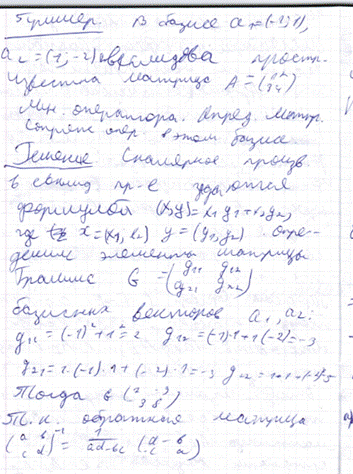 Пример. В базисе a₁=(-1;1),
a₂=(1,-2) евклидова простр.
известна матрица A=(1 2 3 4)
лин. оператора. Опред. матр.
сопряж. опер. в этом базисе.
Решение Скалярное произв.
в евклид пр-е задаются
формулой (x,y)=x₁y₁+x₂y₂,
где x=(x₁,x₂) y=(y₁,y₂). Опре-
делим элементы матрицы
Грамма G=(g₁₁ g₁₂ g₂₁ g₂₂)
базисных векторов a₁, a₂:
g₁₁=(-1)²+1²=2 g₁₂=(-1)·1+1(-2)=-3
g₂₁=1·(-1)+(-2)·1=-3 g₂₂=
Тогда G(2 -3 -3 5)
Т.к. обратная матрица
(a b c d)⁻¹=1/(ad-bc) (d -b -c a)